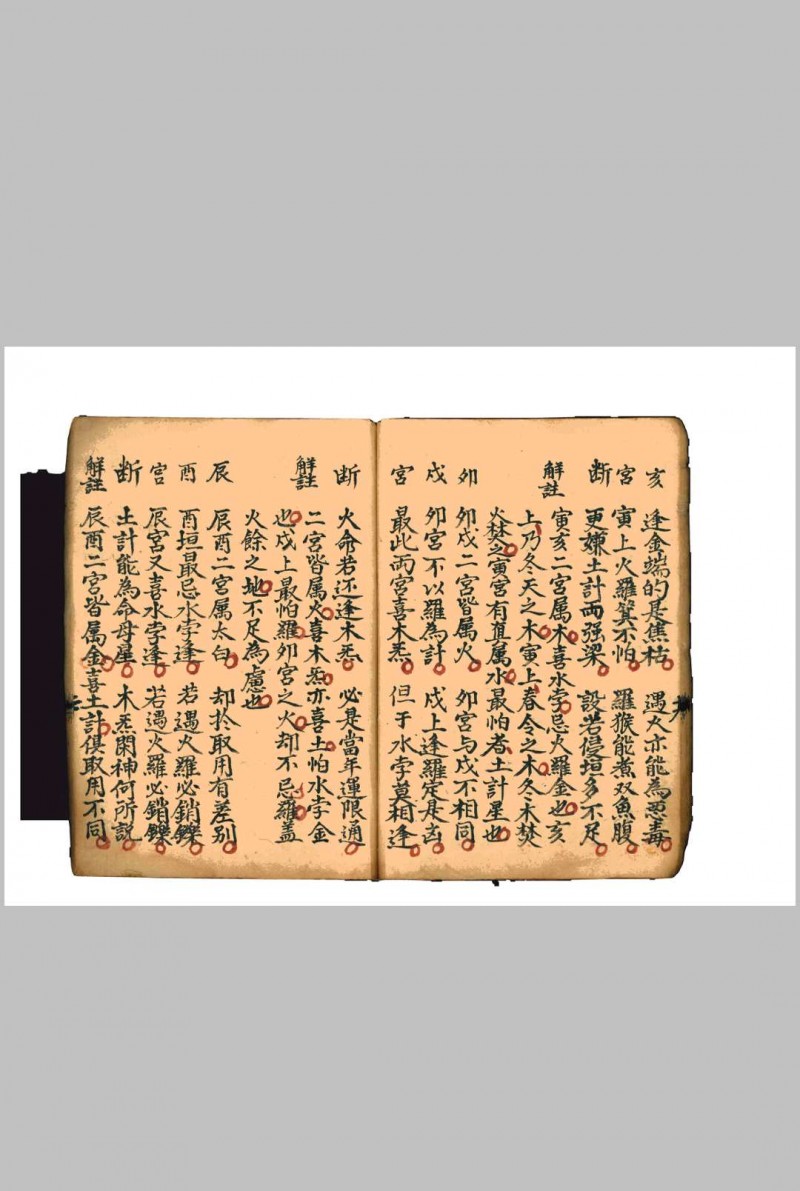 亥 逢金端的是焦枯 遇火亦能為惡毒
宮 寅上火羅箕不怕 羅猴能煮双魚腹
断 更嫌土計两强梁 設若侵垣多不足
解註 寅亥二宮属木喜水孛忌火羅金也亥
上乃冬天之木寅上春令之木冬木焚
火焚之寅宮有直属水最怕者土計星也
卯 卯戌二宮皆属火 卯宮与戌不相同
戌 卯宮不以羅為計 戌上逢羅定是凶
宮 最此两宮喜木炁 但于水孛莫相逢
断 火命若还逢木炁 必是當年運限通
解註 二宮皆属火喜木炁亦喜土怕水孛金
也戌上最怕羅卯宮之火却不忌羅盖
火餘之地不足為慮也
辰 辰酉二宮属太白 却扵取用有差别
酉 酉垣最忌水孛逢 若遇火羅必銷鑠
宫 辰宮又喜水孛逢 若遇火羅必銷鑠
断 土計能為命母星 木炁閑神何所説
解註 辰酉二宮皆属金喜土計俱取用不同